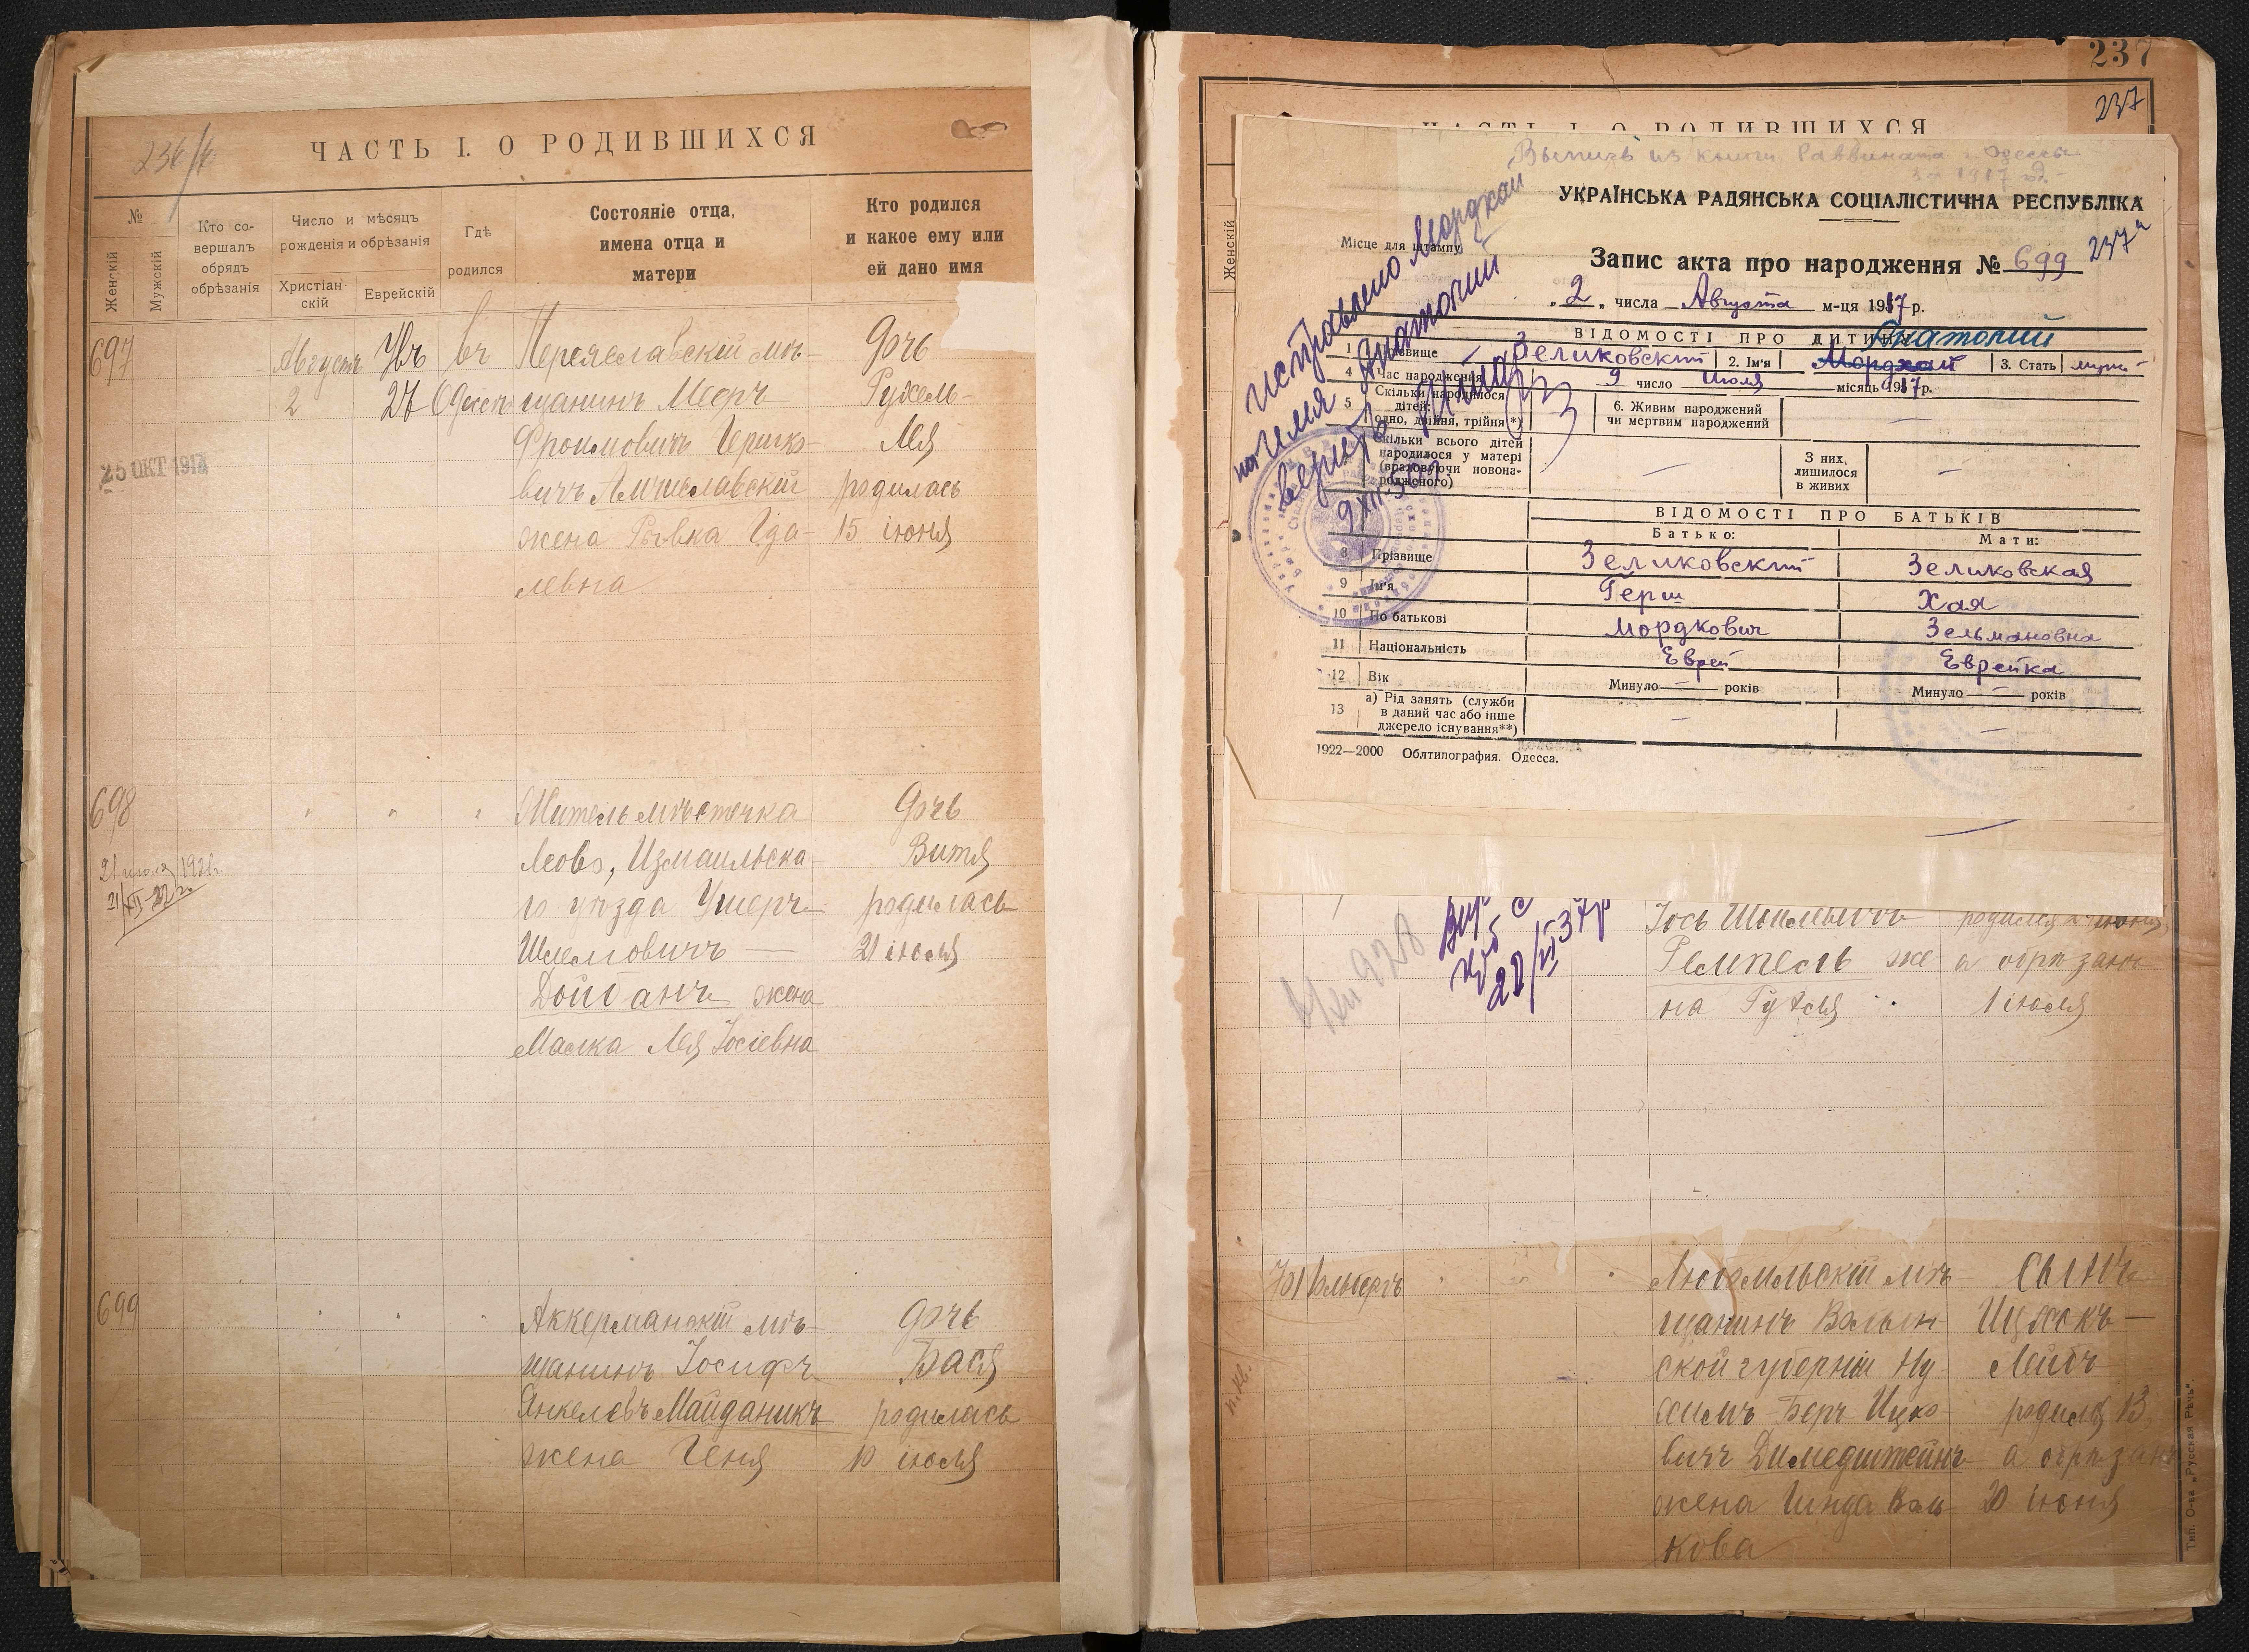 ЧАСТЬ I. О РОДИВШИХСЯ
№
Женскій
Мужскій
Кто со-
вершалъ
обрядъ
обрѣзанія
Число и мѣсяцъ
рожденія и обрѣзанія
Христіан-
скій
Еврейскій
Гдѣ
родился
Состояніе отца,
имена отца и
матери
Кто родился
и какое ему или
ей дано имя
697
Августъ
2
27
въ
Одессѣ
Переяславскій мѣ-
щанинъ Мееръ
Фроимовичъ Гершко-
вичъ
жена Ривка Гда-
левна
дочь
Рухель-
Лея
родилась
15 іюня
25 ОКТ 1914
698
Житель мѣстечка
Леово, Измаильска-
го уѣзда Ушеръ
Шлемовичъ
Дойбанъ жена
Малка Лея Іосіевна
дочь
Витя
родилась
21 іюля
699
Аккерманскій мѣ-
щанинъ Іосифъ
Янкелевъ Майданикъ
жена Геня
дочь
Бася
родилась
10 іюля
237
237
ЧАСТЬ I. О РОДИВШИХСЯ
Женскій
Выпись из книги Раввината г. Одессы
за 1917 год
УКРАЇНСЬКА РАДЯНСЬКА СОЦІАЛІСТИЧНА РЕСПУБЛІКА
Місце для штампу
Запис акта про народження № 699
237а
„ 2 „ числа Августа м-ця 1917 р.
исправлено Мордхай
на имя Анатолий
ВІДОМОСТІ ПРО ДИТИНУ
Анатолий
1 Прізвище Зеликовский 2. Ім'я Мордхай 3. Стать муж
4 Час народження 9 число Июля місяць 1917 р.
5 Скільки народилося
дітей:
(одно, двійня, трійня*)
6. Живим народжений
чи мертвим народжений
Скільки всього дітей
народилося у матері
(враховуючи новона-
родженого)
З них,
лишилося
в живих
ВІДОМОСТІ ПРО БАТЬКІВ
Батько:
Мати:
8 Прізвище Зеликовский Зеликовская
9 Ім'я Герш Хая
10 По батькові Мордкович Зельмановна
11 Національність Еврей Еврейка
12 Вік Минуло — років Минуло — років
13 а) Рід занять (служби
в даний час або інше
джерело існування**)
1922—2000 Облтипография. Одесса.
Іось Шмилевичъ
же
на
родился
а обрѣзанъ
1 іюля
701
мѣ-
щанинъ Волын
ской губерніи Ну
химъ Беръ Ицко
вичъ
жена Гинда Воль
кова
сынъ
Ицхокъ —
Лейбъ
родился 13
а обрѣзанъ
20 іюня
Тип. О-ва „Русская Рѣчь".